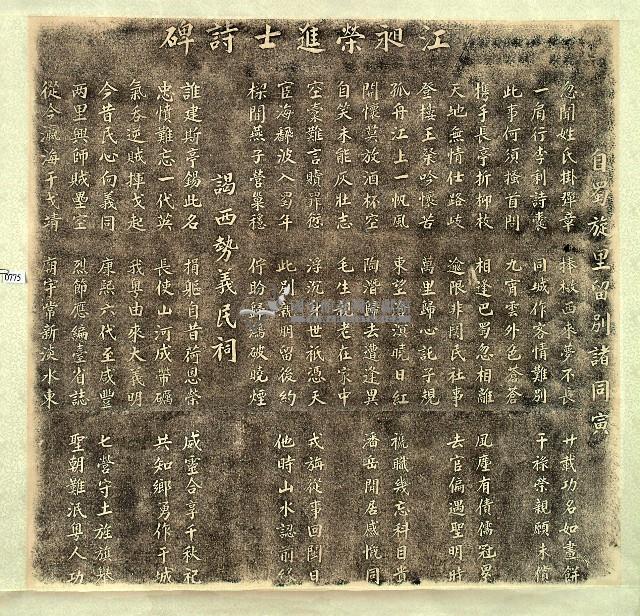 江昶榮進士詩碑
自蜀旋里留別諸同寅
忽聞姓氏掛彈章 捧檄西來夢不長 廿載功名如畫餅
一肩行李利詩囊 同城作客情難別 干祿榮親願未償
此事何須搔首問 九霄雲外色蒼蒼
携手長亭折柳枝 相逢巴蜀忽相離 風塵有債儒冠累
天地無情仕路歧 逾限非關民社事 去官偏遇聖明時
登樓王粲吟懷苦 萬里歸心託子規
孤舟江上一帆風 東望溟曉日紅 褫職幾忘科目貴
關懷莫放酒杯空 陶潛歸去遭逢異 潘岳閒居感慨同
自笑未能灰壯志 毛生親老在家中
空囊難言贖罪愆 浮沉身世祇憑天 戎旃從事回閩日
宦海翻波入蜀年 此別明留後約 他時山水認前緣
樑間燕子營巢穩 佇盼歸鴻破曉煙
謁西勢義民祠
誰建斯亭錫此名 捐軀自昔荷恩榮 威靈合享千秋祀
忠憤難忘一代英 長使山河成帶礪 共知鄉勇作干城
氣吞逆賊揮戈起 我粵由來大義明
今昔民心向義同 康熙六代至咸豐 七營守土旌旗舉
兩里興師賊壘空 烈節應編臺省誌 聖朝難泯粵人功
從今瀛海干戈靖 廟宇常新淡水東
0775